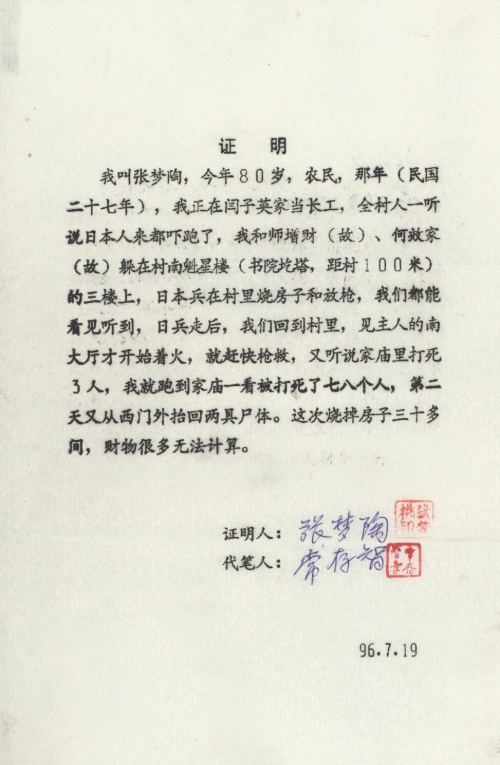 证 明
我叫张梦陶，今年80岁，农民，那年（民国
二十七年），我正在闫子英家当长工，全村人一听
说日本人来都吓跑了，我和师增财（故）、何效家
（故）躲在村南魁星楼（书院圪塔，距村100米）
的三楼上，日本兵在村里烧房子和放枪，我们都能
看见听到，日兵走后，我们回到村里，见主人的南
大厅才开始着火，就赶快枪救，又听说家庙里打死
3人，我就跑到家庙一看被打死了七八个人，第二
天又从西门外抬回两具尸体。这次烧掉房子三十多
间，财物很多无法计算。
证明人：张梦陶
代笔人：常存智
96.7.19